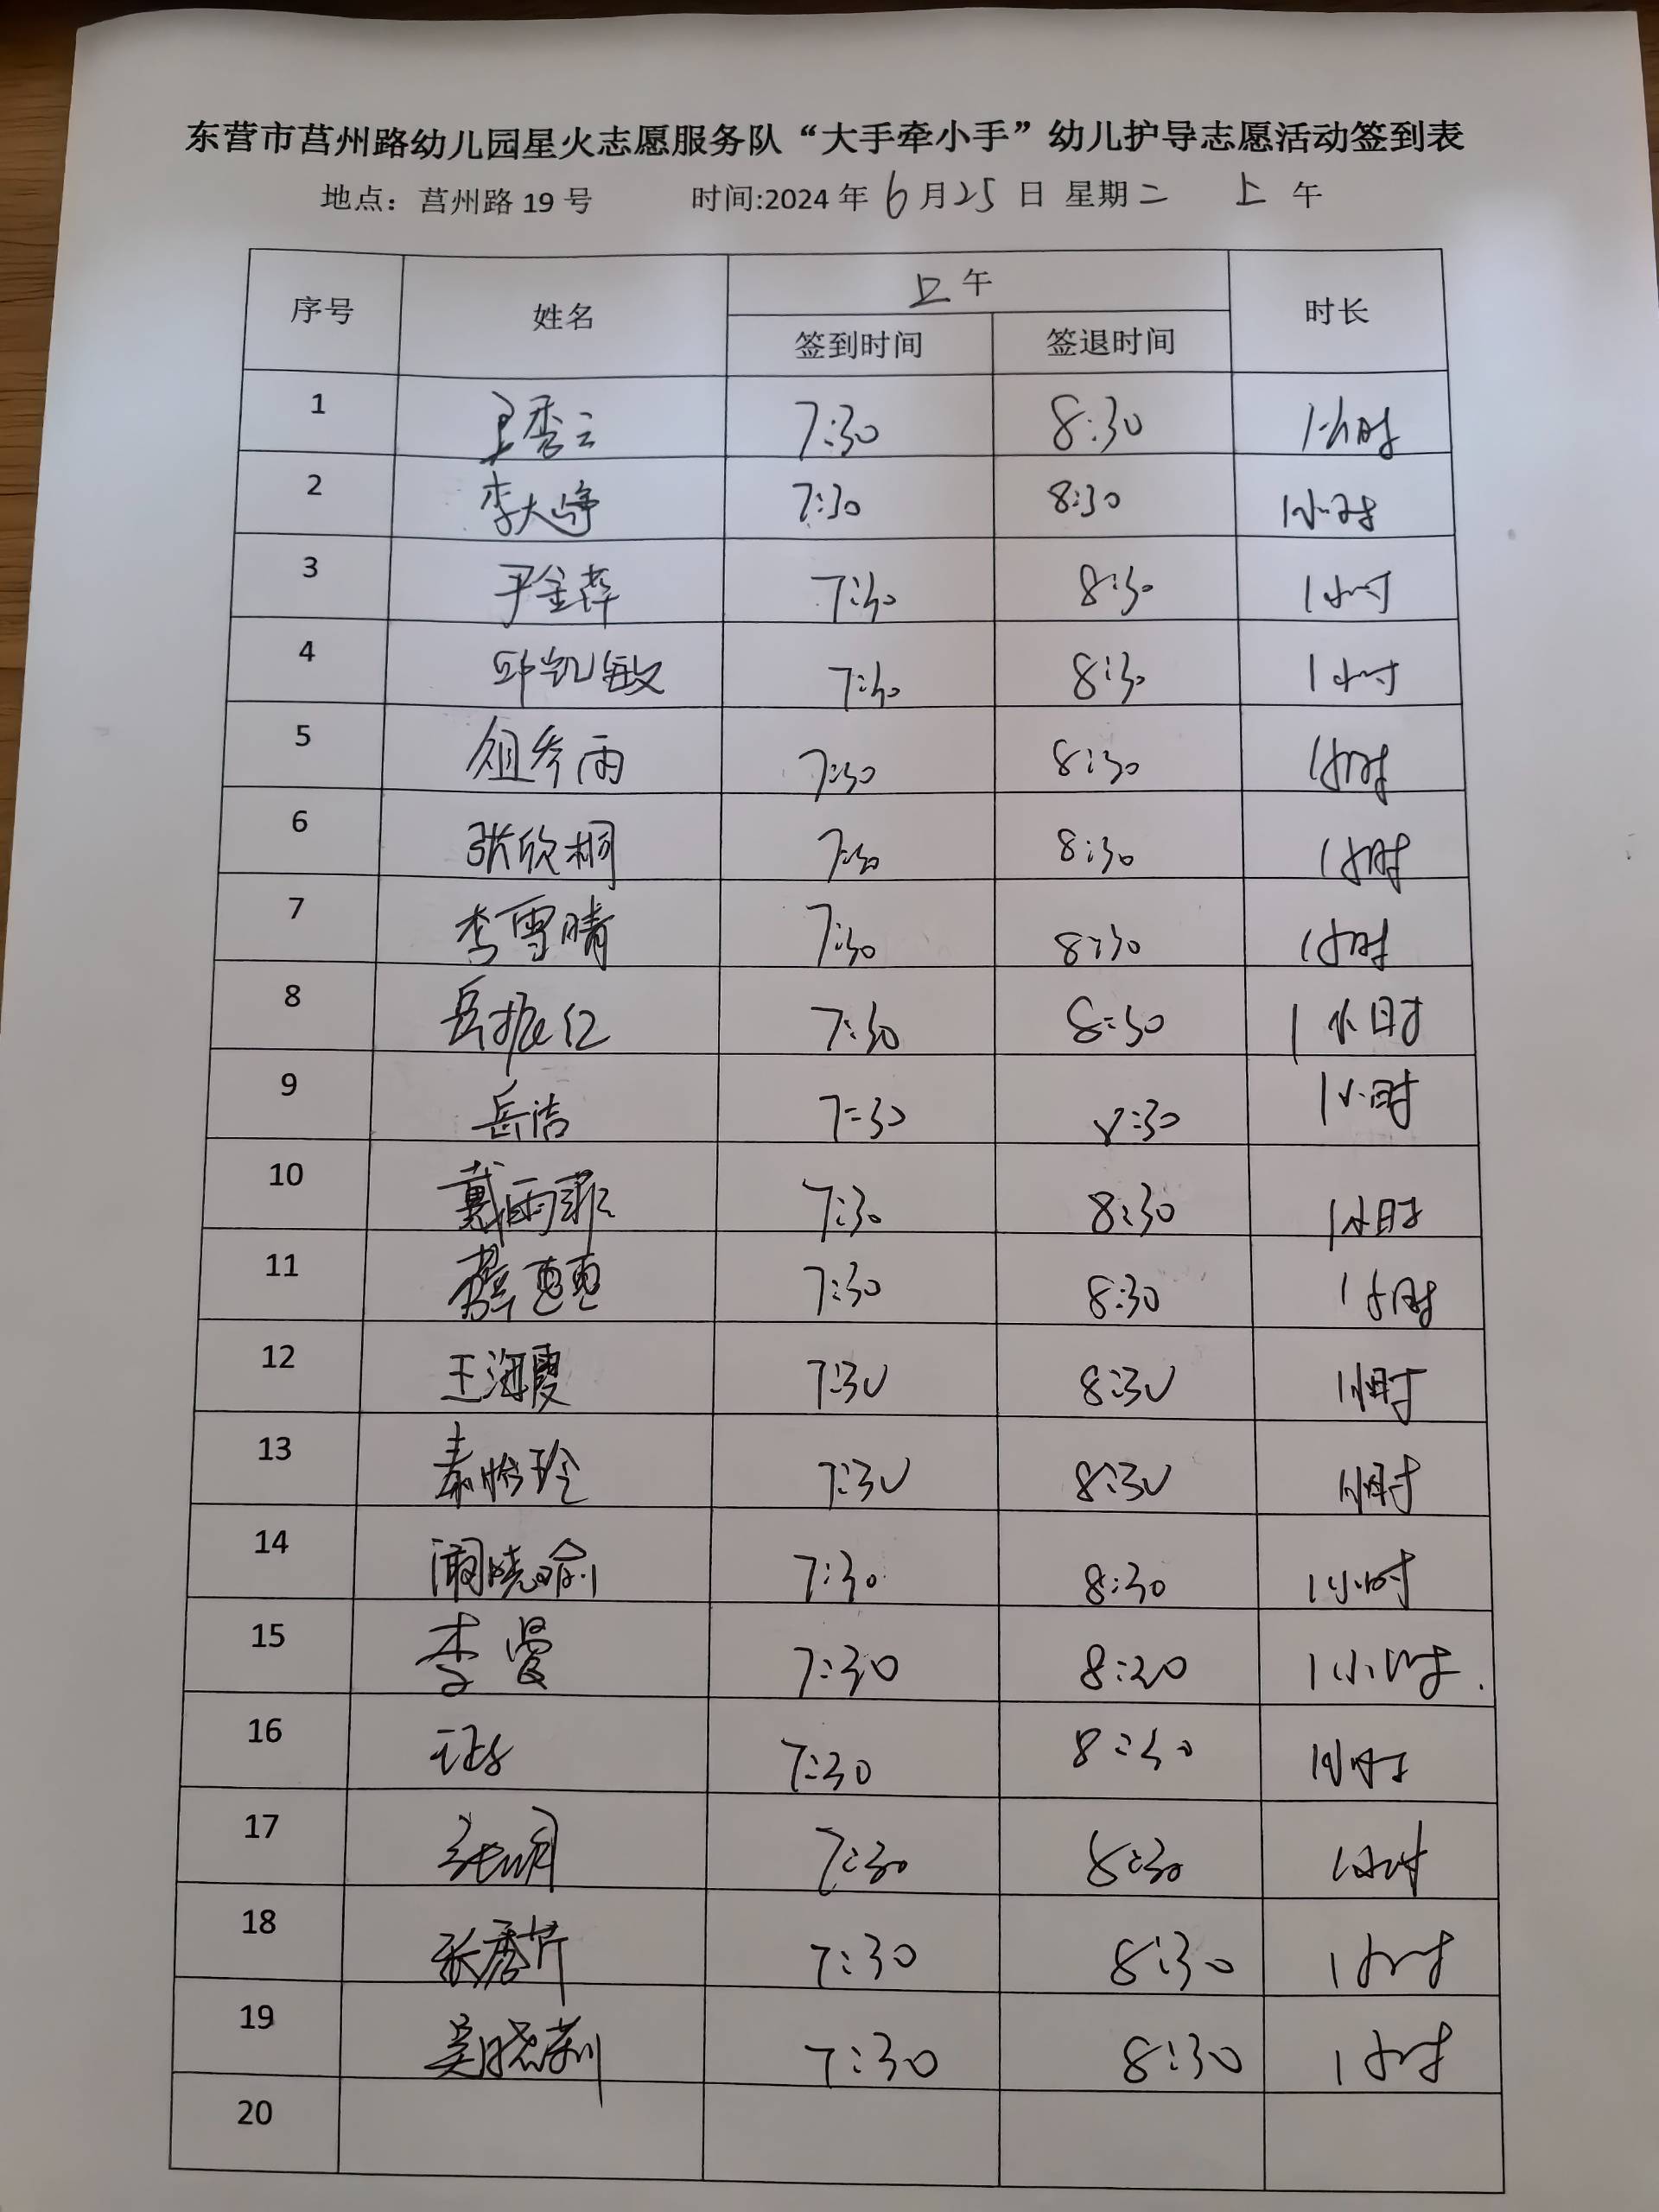 东营市莒州路幼儿园星火志愿服务队“大手牵小手”幼儿护导志愿活动签到表
地点：莒州路 19 号 时间:2024 年 6 月 25 日 星期二 上 午
序号 姓名 上午 时长
签到时间 签退时间
1 王秀云 7:30 8:30 1小时
2 李大峥 7:30 8:30 1小时
3 尹金萍 7:30 8:30 1小时
4 邱凯敏 7:30 8:30 1小时
5 7:30 8:30 1小时
6 张欣桐 7:30 8:30 1小时
7 李雪晴 7:30 8:30 1小时
8 岳振红 7:30 8:30 1小时
9 岳洁 7:30 8:30 1小时
10 戴雨菲 7:30 8:30 1小时
11 薛惠惠 7:30 8:30 1小时
12 王海霞 7:30 8:30 1小时
13 秦怡玲 7:30 8:30 1小时
14 7:30 8:30 1小时
15 李曼 7:30 8:20 1小时.
16 7:30 8:30 1小时
17 7:30 8:30 1小时
18 张秀芹 7:30 8:30 1小时
19 吴晓莉 7:30 8:30 1小时
20